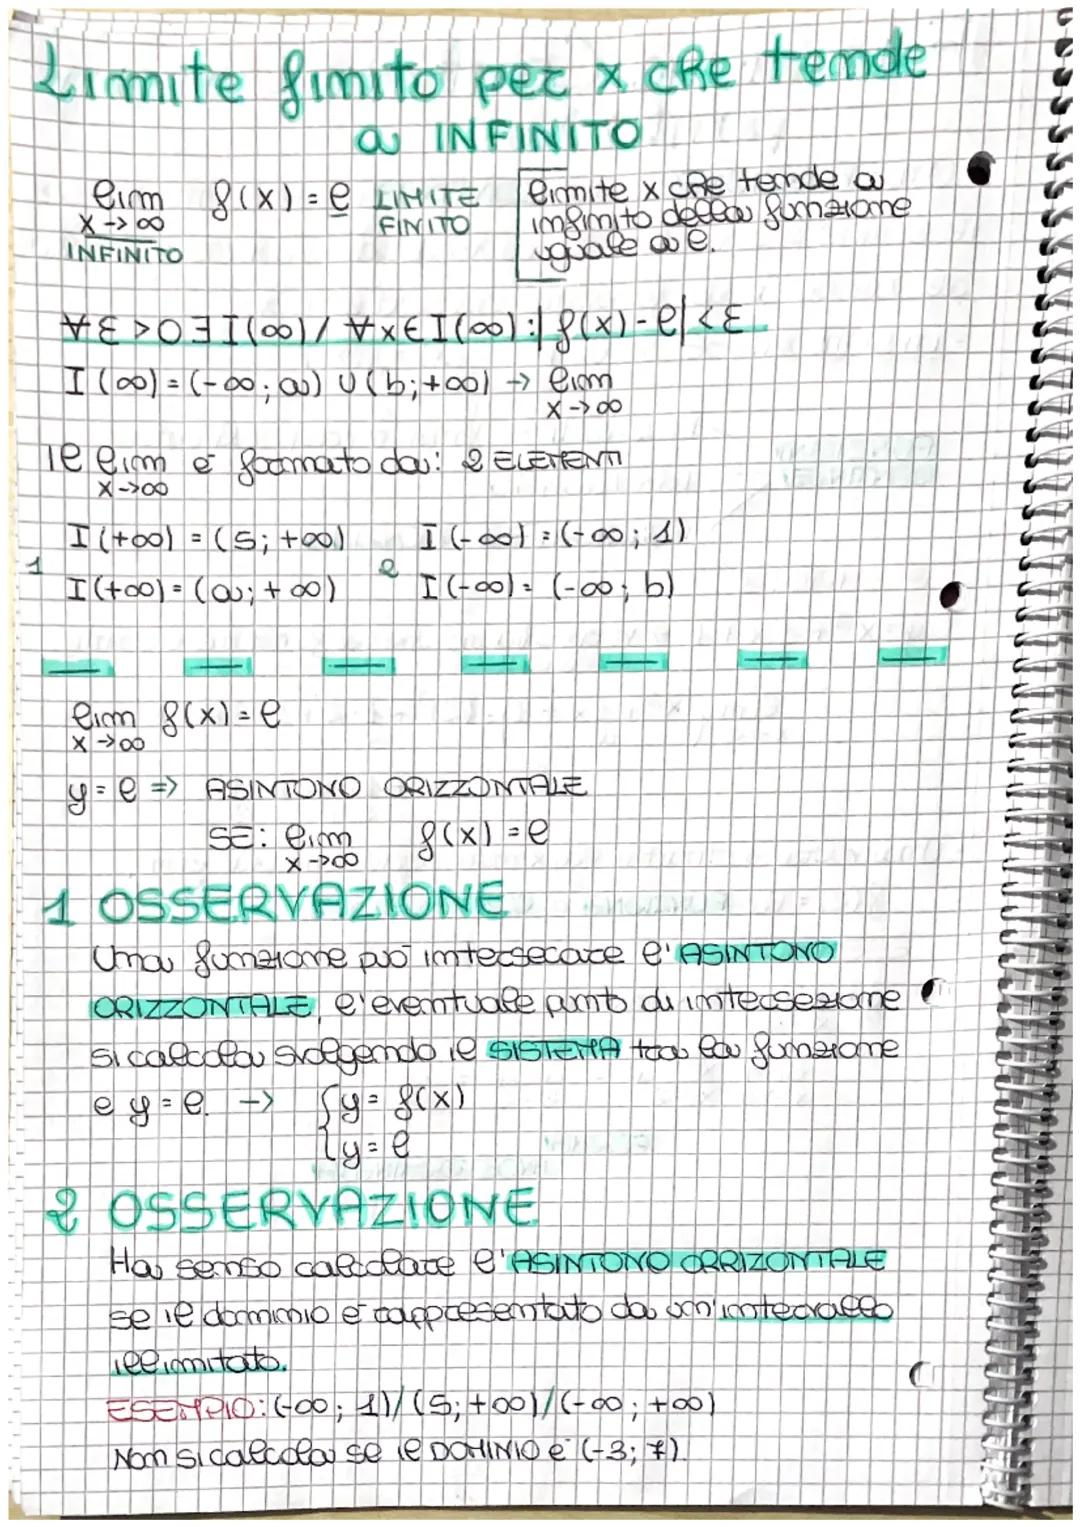 Limite finito per x che tende
a INFINITO
lim f(x) = l LIMITE FINITO
x→∞
INFINITO
limite x che tende a
infinito della funzione
uguale a l.
∀ε>0 ∃ I(∞) / ∀x∈I(∞): |f(x)-l|<ε
I(∞) = (-∞; a) ∪ (b; +∞) → lim
x→∞
il lim è formato da: 2 ELEMENTI
x→∞
I(+∞) = (5; +∞) I(-∞) = (-∞; 1)
1 2
I(+∞) = (a; +∞) I(-∞) = (-∞; b)
lim f(x) = l
x→∞
y = l => ASINTONO ORIZZONTALE
SE: lim f(x) = l
x→∞
1 OSSERVAZIONE
Una funzione può intersecare l'ASINTONO
ORIZZONTALE, l'eventuale punto di intersezione
si calcola svolgendo il SISTEMA tra la funzione
e y = l. → {y = f(x)
{y = l
2 OSSERVAZIONE
Ha senso calcolare l'ASINTONO ORRIZONTALE
se il dominio è rappresentato da un'intervallo
illimitato.
ESEMPIO: (-∞; 1) / (5; +∞) / (-∞; +∞)
Non si calcola se il DOMINIO è (-3; 7).